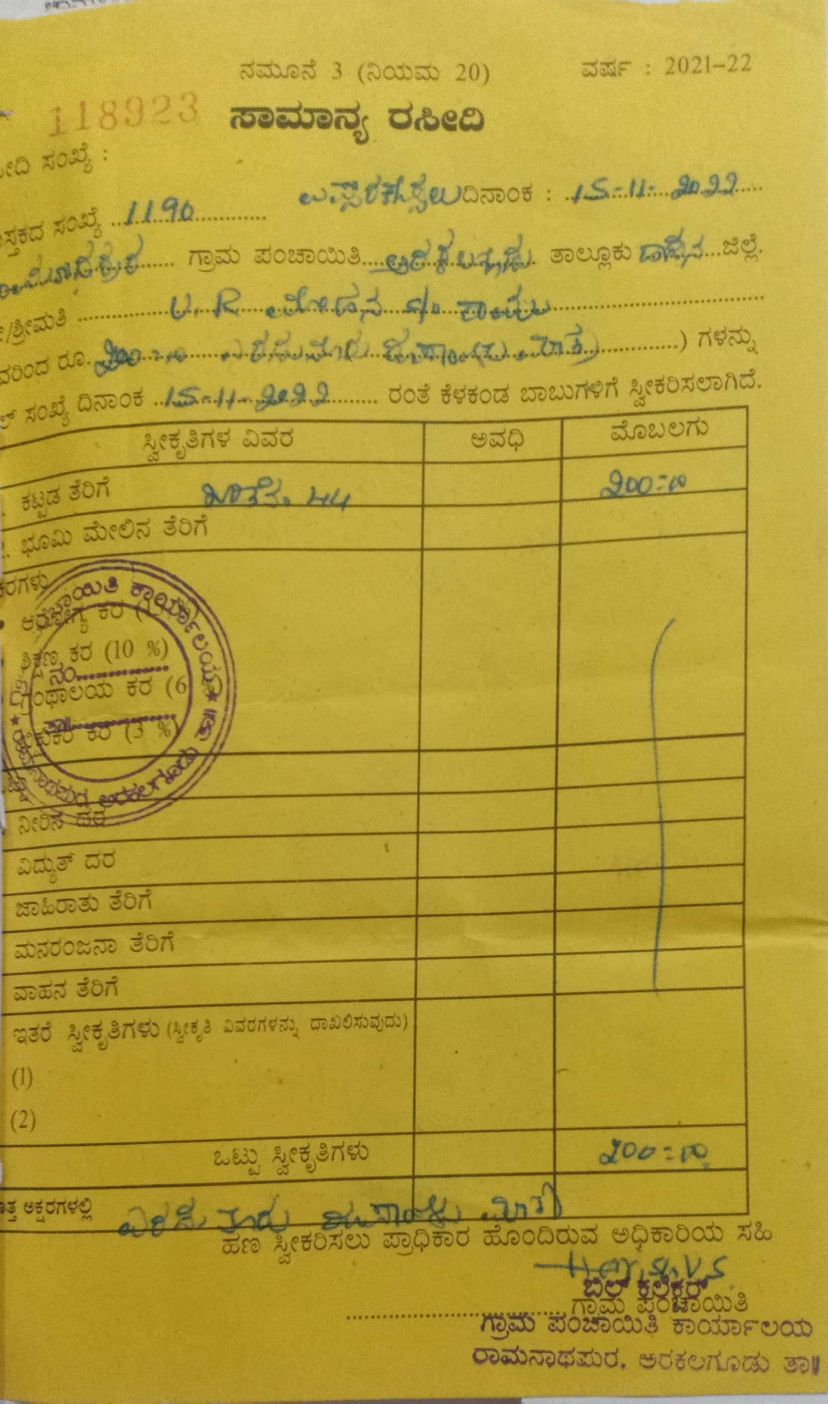 ನಮೂನೆ 3 (ನಿಯಮ 20) ವರ್ಷ : 2021-22
118923 ಸಾಮಾನ್ಯ ರಸೀದಿ
ೀದಿ ಸಂಖ್ಯೆ :
ಸ್ತಕದ ಸಂಖ್ಯೆ 1190 ದಿನಾಂಕ : 15-11-2022
ಗ್ರಾಮ ಪಂಚಾಯಿತಿ ಅರಕಲಗೂಡು ತಾಲ್ಲೂಕು ಹಾಸನ ಜಿಲ್ಲೆ.
/ಶ್ರೀಮತಿ U.R ಮೋಹನ s/o
ವರಿಂದ ರೂ. 200=00 ಎರಡು ನೂರು ರೂಪಾಯಿ ಮಾತ್ರ ) ಗಳನ್ನು
ಲ್ ಸಂಖ್ಯೆ ದಿನಾಂಕ 15-11-2022 ರಂತೆ ಕೆಳಕಂಡ ಬಾಬುಗಳಿಗೆ ಸ್ವೀಕರಿಸಲಾಗಿದೆ.
ಸ್ವೀಕೃತಿಗಳ ವಿವರ ಅವಧಿ ಮೊಬಲಗು
ಕಟ್ಟಡ ತೆರಿಗೆ 44 200=00
ಭೂಮಿ ಮೇಲಿನ ತೆರಿಗೆ
ಕರಗಳು
ಆರೋಗ್ಯ ಕರ (15 %)
ಶಿಕ್ಷಣ ಕರ (10 %)
ಗ್ರಂಥಾಲಯ ಕರ (6
ಭಿಕ್ಷುಕರ ಕರ (3 %)
ನೀರಿನ ದರ
ವಿದ್ಯುತ್ ದರ
ಜಾಹಿರಾತು ತೆರಿಗೆ
ಮನರಂಜನಾ ತೆರಿಗೆ
ವಾಹನ ತೆರಿಗೆ
ಇತರೆ ಸ್ವೀಕೃತಿಗಳು (ಸ್ವೀಕೃತಿ ವಿವರಗಳನ್ನು ದಾಖಲಿಸುವುದು)
(1)
(2)
ಒಟ್ಟು ಸ್ವೀಕೃತಿಗಳು 200=00
ಅಕ್ಷರಗಳಲ್ಲಿ ಎರಡು ನೂರು ರೂಪಾಯಿ ಮಾತ್ರ
ಹಣ ಸ್ವೀಕರಿಸಲು ಪ್ರಾಧಿಕಾರ ಹೊಂದಿರುವ ಅಧಿಕಾರಿಯ ಸಹಿ
ಬಿಲ್ ಕಲೆಕ್ಟರ್
ಗ್ರಾಮ ಪಂಚಾಯಿತಿ
ಗ್ರಾಮ ಪಂಚಾಯಿತಿ ಕಾರ್ಯಾಲಯ
ರಾಮನಾಥಪುರ, ಅರಕಲಗೂಡು ತಾ||